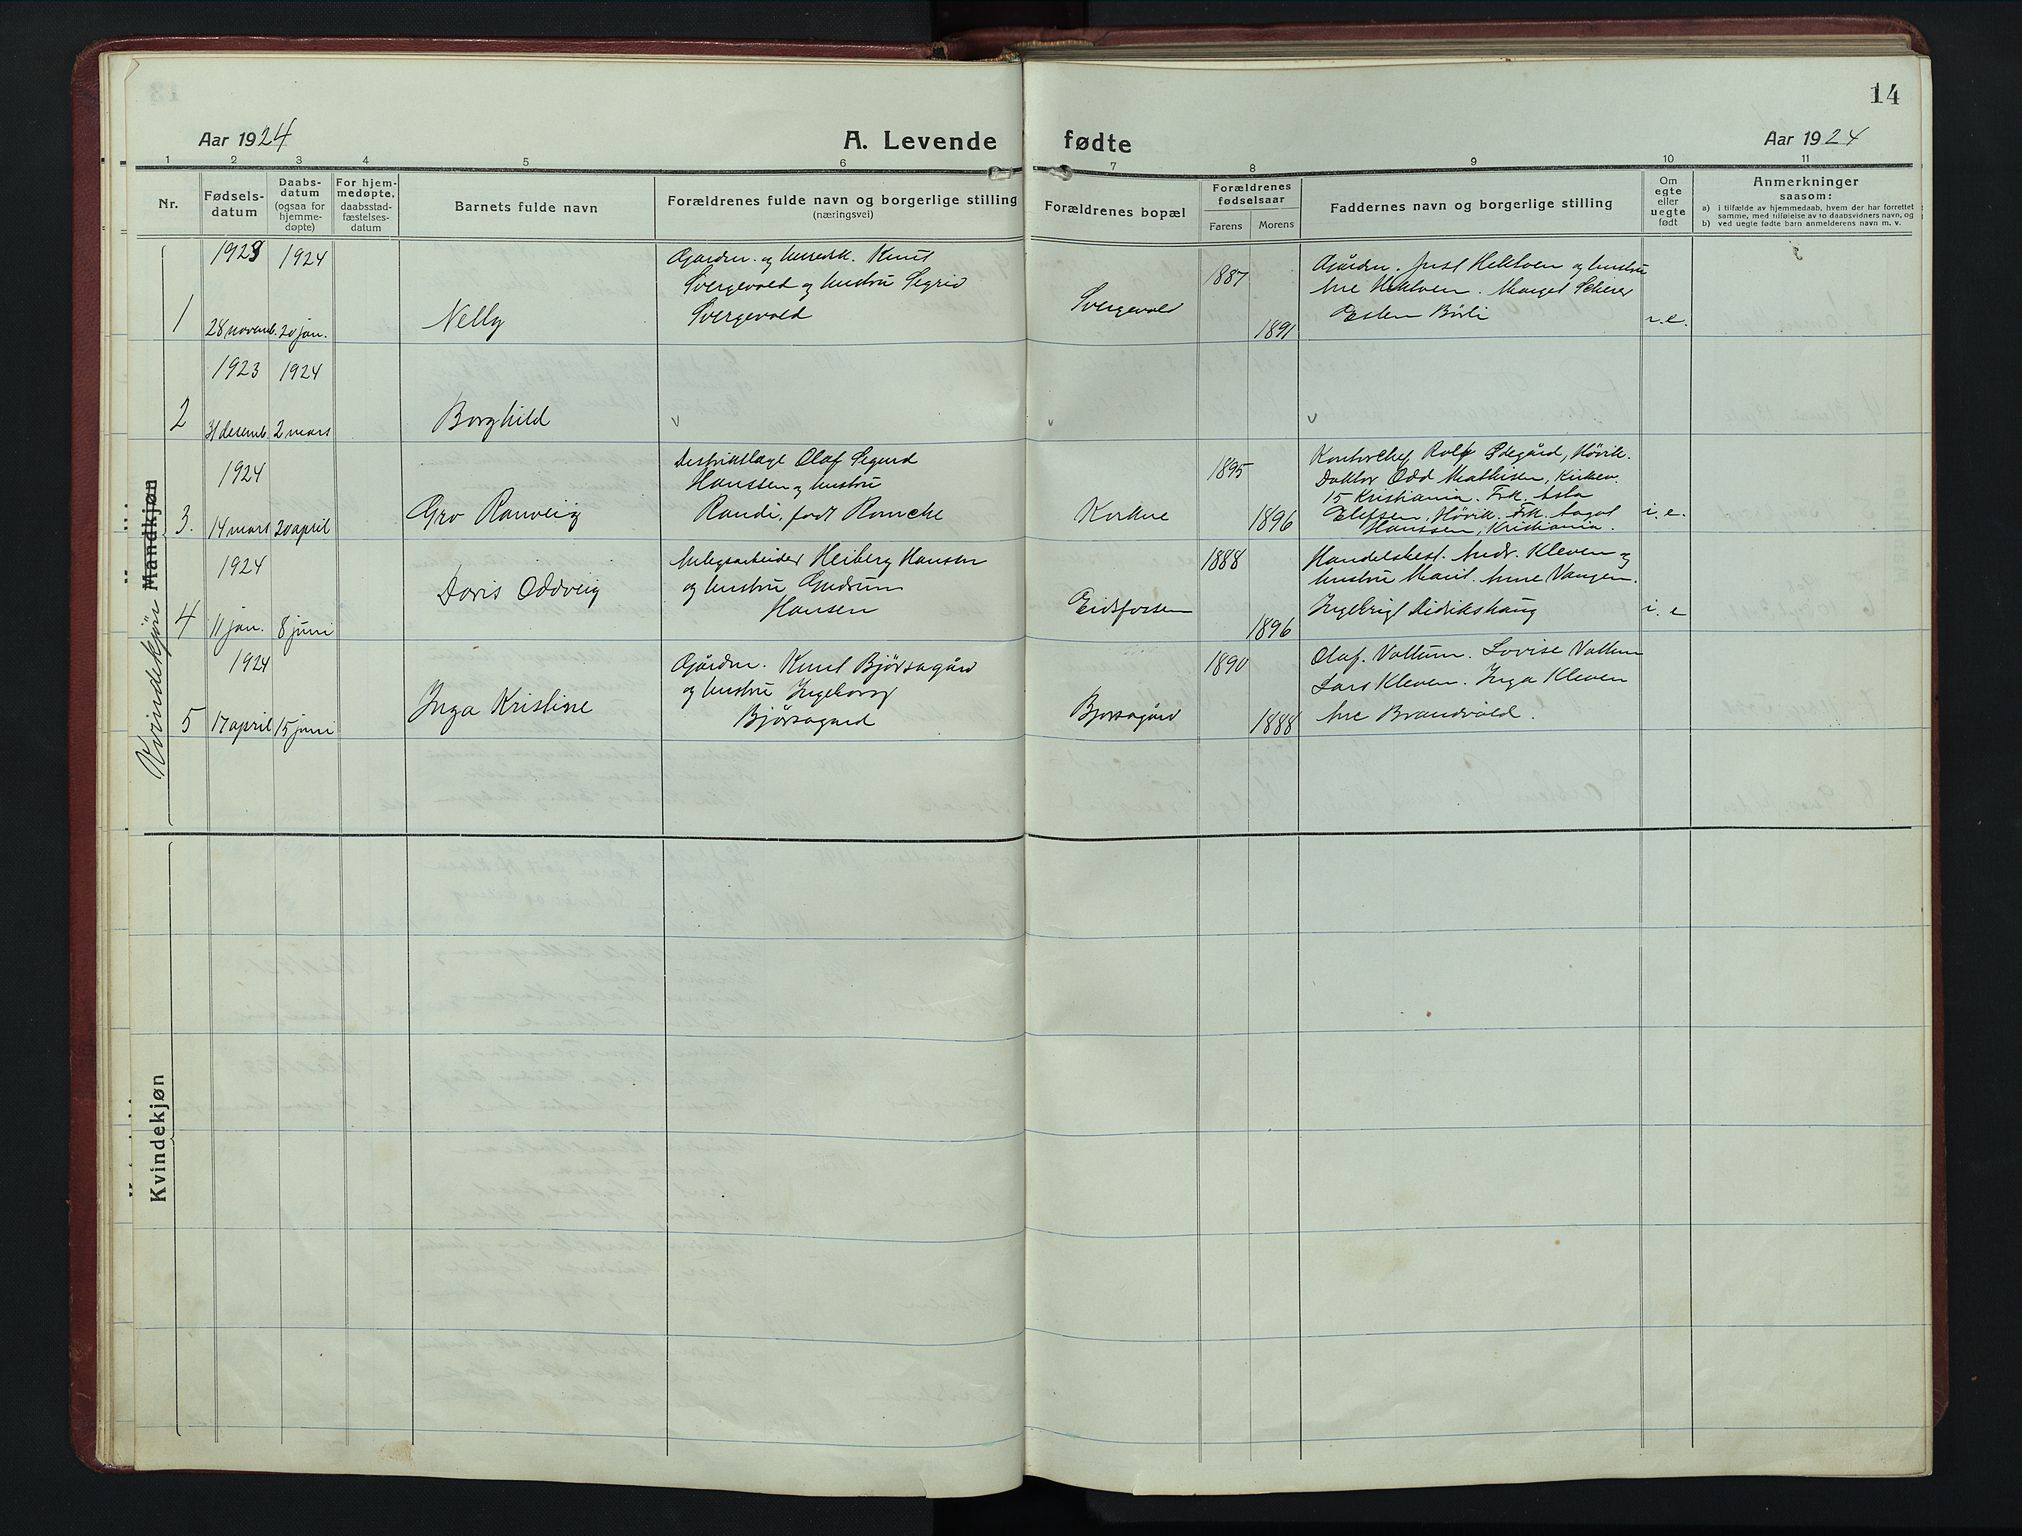 14
Aar 1924
A. Levende fødte
Aar 1924
1 2 3 4 5 6 7 8 9 10 11
Nr.
Fødsels-
datum
Daabs-
datum
(ogsaa for
hjemme-
døpte)
For hjem-
medøpte,
daabsstad-
fæstelses-
datum
Barnets fulde navn
Forældrenes fulde navn og borgerlige stilling
(næringsvei)
Forældrenes bopæl
Forældrenes
fødselsaar
Farens Morens
Faddernes navn og borgerlige stilling
Om
egte
eller
uegte
født
Anmerkninger
saasom:
a) i tilfælde av hjemmedaab, hvem der har forrettet
samme, med tilføielse av to daabsvidners navn, og
b) ved uegte fødte barn anmelderens navn m. v.
Mandkjøn
Kvindekjön
1
1923
28 novemb.
1924
20 jan.
Nelly
Gårdbr. og herredsk. Knut
Svergevold og hustru Sigrid
Svergevold
Svergevold
1887
1891
Gårdbr. Just Hektoen og hustru
Ane Hektoen. Marget Scherer
Esten Börli
2
1923
31 desemb.
1924
2 mars
Borghild
v
v
v
3.
1924
14 mars
20 april
Gro Ranveig
Distriktlæge Olaf Sigurd
Hanssen og hustru
Randi, født
Kirkne
1895
1896
Kontorchef Rolf Ødegård, Hövik.
Doktor Odd Mathisen, Kirkev.
15 Kristiania. Frk. Asta
Ellefsen, Hövik. Frk. Aagot
Hanssen, Kristiania.
i. e.
4
1924
11 jan.
8 juni
Doris Oddveig
Anlegsarbeider Heiberg Hansen
og hustru Gudrun
Hansen
Eidsfossen
1888
1896
Handelsbest. Andr. Kleven og
hustru Marit. Anne Vangen.
Ingebrigt Didrikshaug
i. e
5
1924
17 april
15 juni
Inga Kristine
Gårdbr. Knut Bjørsagård
og hustru Ingeborg
Bjørsagaard
Bjorsagård
1890
1888
Olaf. Vollum. Lovise Vollum
Lars Kleven. Inga Kleven
Ane Brandvold.
Kvindekjøn